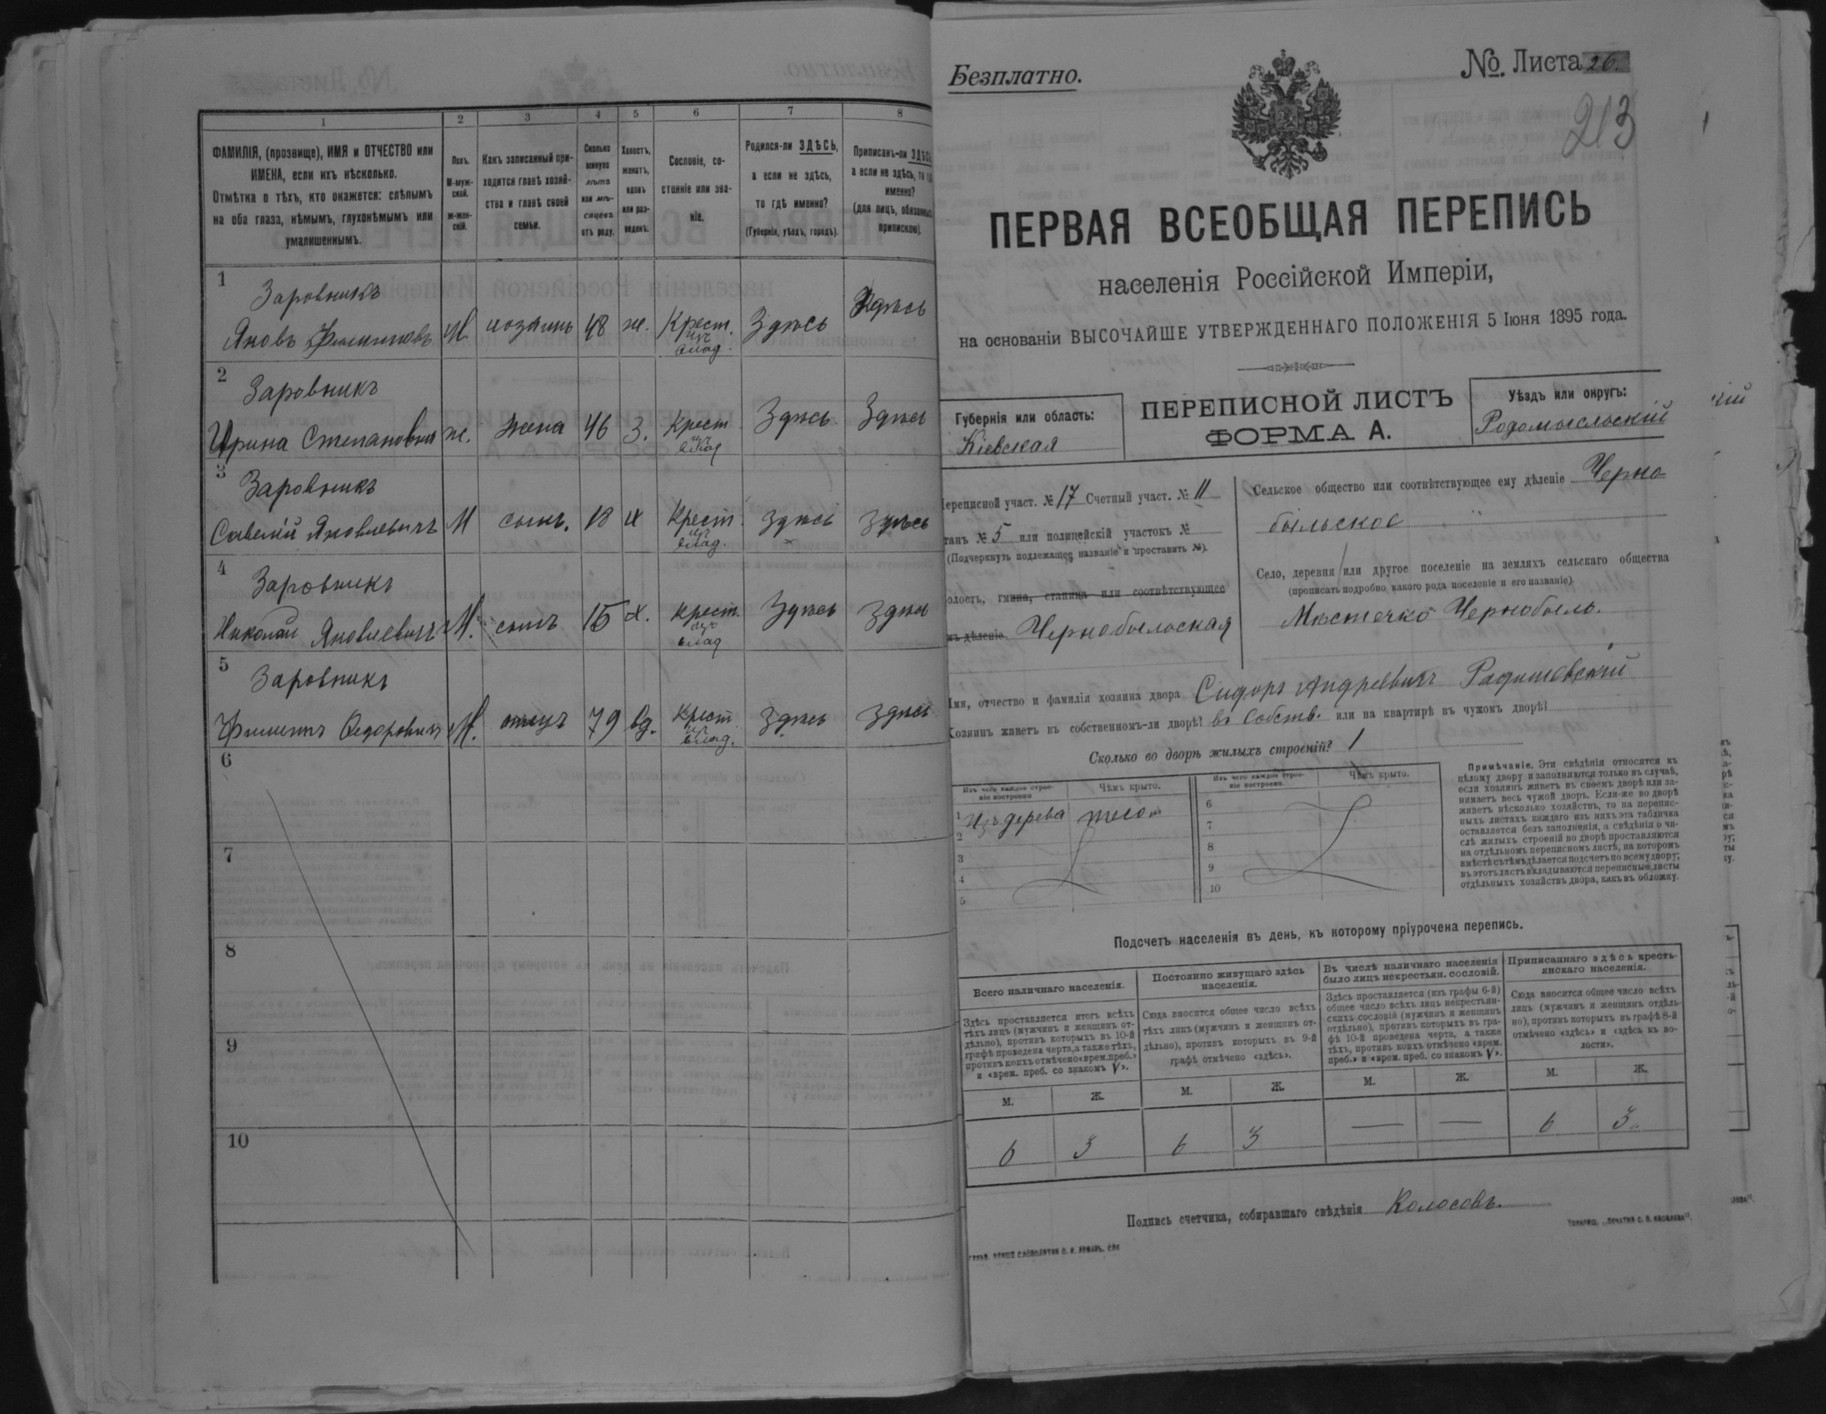 1 2 3 4 5 6 7 8
ФАМИЛІЯ, (прозвище), ИМЯ и ОТЧЕСТВО или
ИМЕНА, если ихъ нѣсколько.
Отмѣтка о тѣхъ, кто окажется: слѣпымъ
на оба глаза, нѣмымъ, глухонѣмымъ или
умалишеннымъ.
Полъ.
М-муж-
ской.
ж-жен-
скій.
Какъ записанный при-
ходится главѣ хозяй-
ства и главѣ своей
семьи.
Сколько
минуло
лѣтъ
или мѣ-
сяцевъ
отъ роду.
Холостъ,
женатъ,
вдовъ
или раз-
веденъ.
Сословіе, со-
стояніе или зва-
ніе.
Родился-ли ЗДѢСЬ,
а если не здѣсь,
то гдѣ именно?
(Губернія, уѣздъ, городъ).
Приписанъ-ли ЗДѢСЬ
а если не здѣсь, то
именно?
(для лицъ,
припискою).
1
Заровникъ
Яковъ М хозяинъ 48 ж. Крест. Здѣсь Здѣсь
2
Заровникъ
Ирина Степановна ж. жена 46 З. Крест Здѣсь Здѣсь
3
Заровникъ
Савелій Яковлевичъ М сынъ. 18 Х Крест Здѣсь Здѣсь
4
Заровникъ
Николай Яковлевичъ М. сынъ 15 Х. Крест. Здѣсь Здѣсь
5
Заровникъ
Филиппъ Федоровичъ М. отецъ 79 вд. Крест. Здѣсь Здѣсь
6
7
8
9
10
Безплатно.
№ Листа 26.
213
ПЕРВАЯ ВСЕОБЩАЯ ПЕРЕПИСЬ
населенія Россійской Имперіи,
на основаніи ВЫСОЧАЙШЕ УТВЕРЖДЕННАГО ПОЛОЖЕНІЯ 5 Іюня 1895 года.
Губернія или область:
Кіевская
ПЕРЕПИСНОЙ ЛИСТЪ
ФОРМА А.
Уѣздъ или округъ:
Радомысльскій
Переписной участ. № 17 Счетный участ. № 11
Станъ № 5 или полицейскій участокъ №
(Подчеркнуть подлежащее названіе и проставить №).
Волость, гмина, станица или соотвѣтствующее
имъ дѣленіе Чернобыльская
Сельское общество или соотвѣтствующее ему дѣленіе Черно
быльское
Село, деревня или другое поселеніе на земляхъ сельскаго общества
(прописать подробно какого рода поселеніе и его названіе)
Мѣстечко Чернобыль.
Имя, отчество и фамилія хозяина двора Сидоръ Андреевичъ Радишевскій
Хозяинъ живетъ въ собственномъ-ли дворѣ? въ собств. или на квартирѣ въ чужомъ дворѣ?
Сколько во дворѣ жилыхъ строеній? 1
Изъ чего каждое строе-
ніе построено
Чѣмъ крыто.
Изъ чего каждое строе-
ніе построено
Чѣмъ крыто.
1 Изъ дерева тесом
2
3
4
5
6
7
8
9
10
Примѣчаніе. Эти свѣдѣнія относятся къ
цѣлому двору и заполняются только въ случаѣ,
если хозяинъ живетъ въ своемъ дворѣ или за-
нимаетъ весь чужой дворъ. Если-же во дворѣ
живетъ нѣсколько хозяйствъ, то на перепис-
ныхъ листахъ каждаго изъ нихъ эта табличка
оставляется безъ заполненія, а свѣдѣнія о чи-
слѣ жилыхъ строеній во дворѣ проставляются
на отдѣльномъ переписномъ листѣ, на которомъ
вмѣстѣ съ тѣмъ дѣлается подсчетъ по всему двору;
въ этотъ листъ вкладываются переписные листы
отдѣльныхъ хозяйствъ двора, какъ въ обложку.
Подсчетъ населенія въ день, къ которому пріурочена перепись.
Всего наличнаго населенія.
Здѣсь проставляется итогъ всѣхъ
тѣхъ лицъ (мужчинъ и женщинъ от-
дѣльно), противъ которыхъ въ 10-й
графѣ проведена черта, а также тѣхъ,
противъ коихъ отмѣчено «врем. преб.»
и «врем. преб. со знакомъ V».
Постоянно живущаго здѣсь
населенія.
Сюда вносится общее число всѣхъ
тѣхъ лицъ (мужчинъ и женщинъ от-
дѣльно), противъ которыхъ въ 9-й
графѣ отмѣчено «здѣсь».
Въ числѣ наличнаго населенія
было лицъ некрестьян. сословій.
Здѣсь проставляется (изъ графы 6-й)
общее число всѣхъ лицъ некрестьян-
скихъ сословій (мужчинъ и женщинъ
отдѣльно), противъ которыхъ въ гра-
фѣ 10-й проведена черта, а также
тѣхъ, противъ коихъ отмѣчено «врем.
преб.» и «врем. преб. со знакомъ V».
Приписаннаго здѣсь кресть-
янскаго населенія.
Сюда вносится общее число всѣхъ
лицъ (мужчинъ и женщинъ отдѣль-
но), противъ которыхъ въ графѣ 8-й
отмѣчено «здѣсь» и «здѣсь въ во-
лости».
М. Ж. М. Ж. М. Ж. М. Ж.
6 3 6 3 — — 6 3
Подпись счетчика, собиравшаго свѣдѣнія Колосовъ.